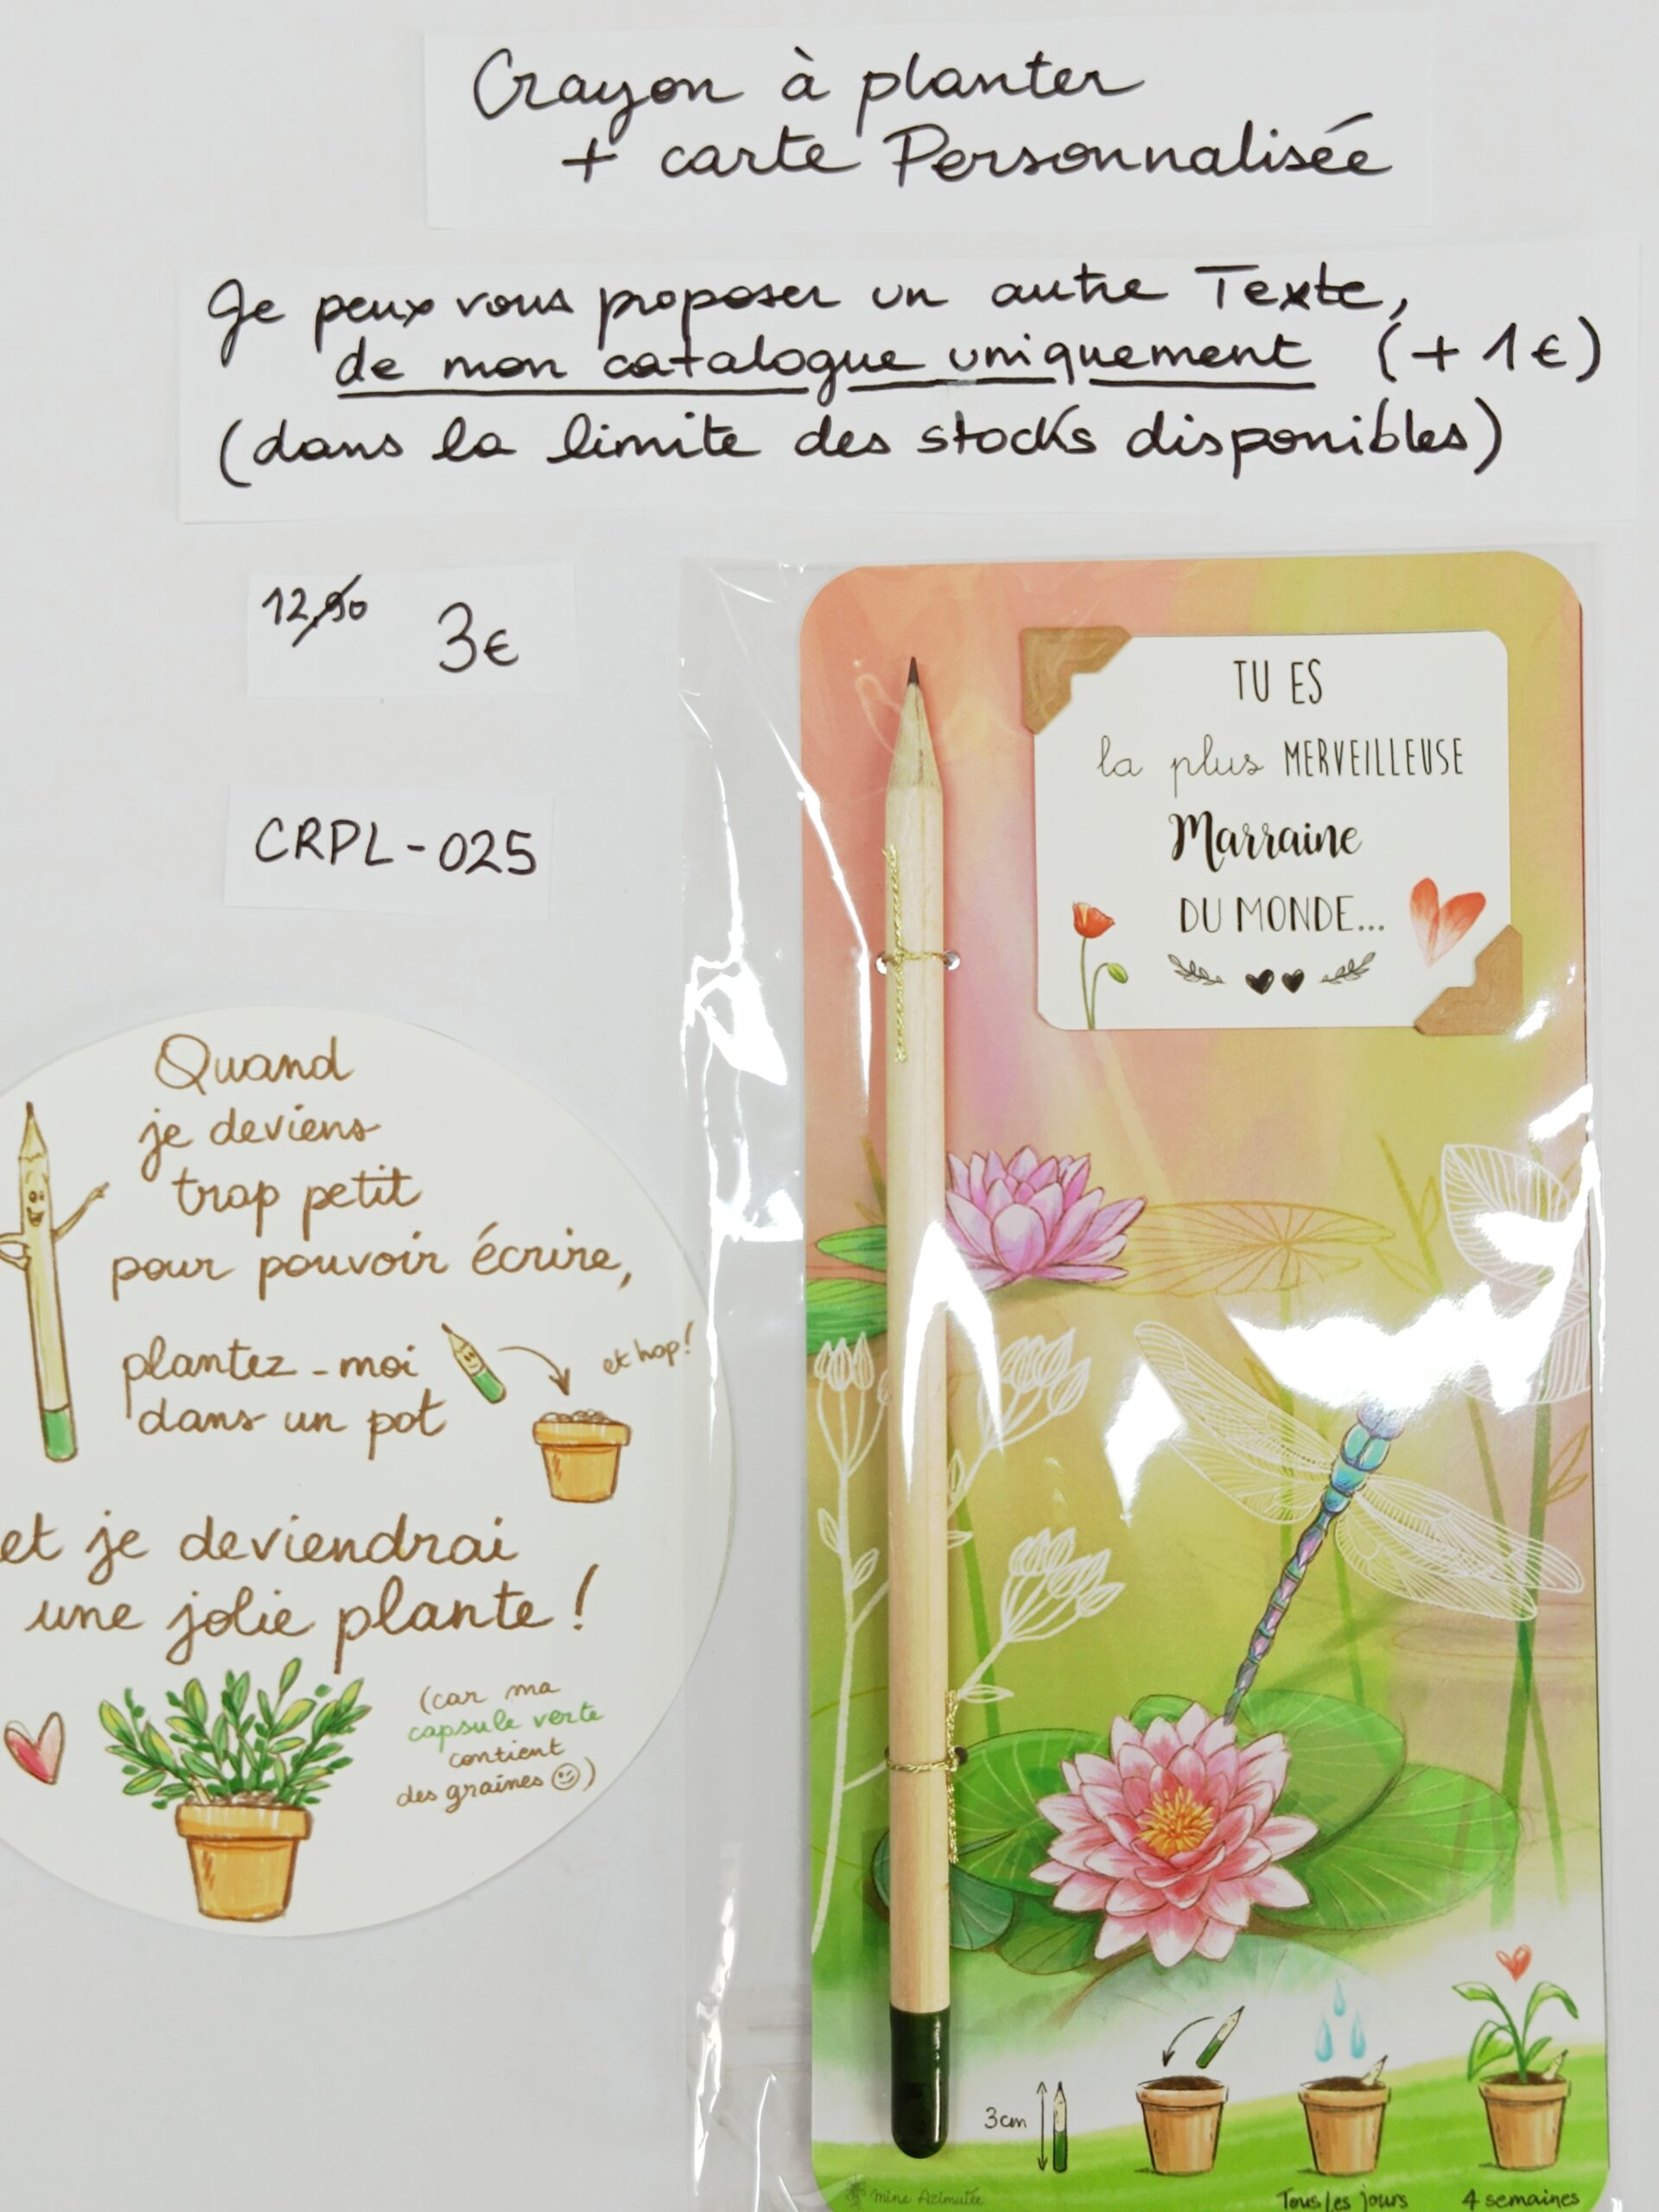 Crayon à planter
+ carte Personnalisée
Je peux vous proposer un autre Texte,
de mon catalogue uniquement (+ 1€)
(dans la limite des stocks disponibles)
12,90 3€
CRPL-025
TU ES
la plus MERVEILLEUSE
Marraine
DU MONDE...
Quand
je deviens
trop petit
pour pouvoir écrire,
plantez-moi
dans un pot
et hop!
et je deviendrai
une jolie plante !
(car ma
capsule verte
contient
des graines ☺)
3cm
Tous les jours
4 semaines
mine Azimutée